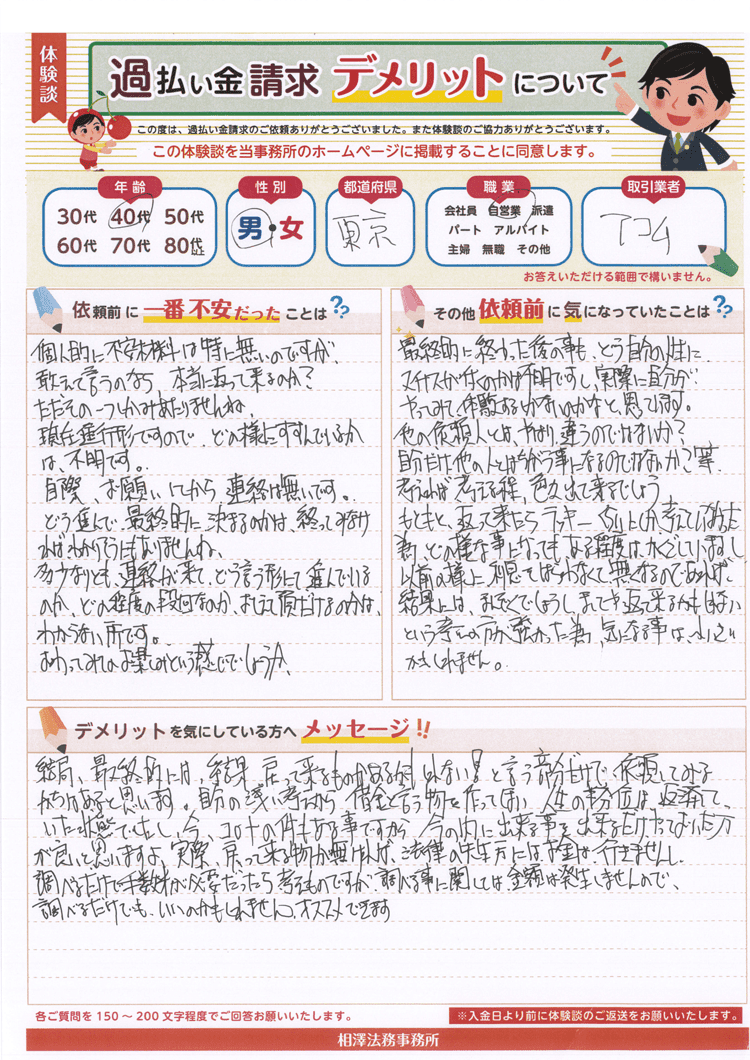 体験談
過払い金請求 デメリットについて
この度は、過払い金請求のご依頼ありがとうございました。また体験談のご協力ありがとうございます。
この体験談を当事務所のホームページに掲載することに同意します。
年齢
30代 40代 50代
60代 70代 80代以上
性別
男・女
都道府県
東京
職業
会社員 自営業 派遣
パート アルバイト
主婦 無職 その他
取引業者
アコム
お答えいただける範囲で構いません。
依頼前に一番不安だったことは??
個人的に不安材料は特に無いのですが、
敢えて言うのなら、本当に返って来るのか?
ただその一つしかみあたりませんね、
現在進行形ですので、どの様にすすんでいるか
は、不明です。
自際、お願いしてから連絡は無いです。
どう進んで、最終的に決まるのかは、終ってみなけ
ればわかりそうにもありませんね、
多少なりとも、連絡が来て、どう言う形にて進んでいる
のか、どの程度の段階なのか、おしえて頂けるのかは、
わからない所です。
おわってみれのお楽しみという感じでしょうか、
その他依頼前に気になっていたことは??
最終的に終わった後の事も、どう自分の性に
マイナスが付くのかは不明ですし、実際に自分が
やってみて体験するしかないのかなと、思ってます。
他の依頼人とは、やはり違うのではないか?
自分だけ他の人とはちがう事になるのではないか?等、
考えれば考える程、色々出て来るでしょう
もともと、返って来たらラッキーくらいしか、考えていなかった
為、どの様な事になっても、ある程度は
以前の様に
結果的には、まだでしょうし、
という考えの方が強かった為、気になる事は、
かもしれません。
デメリットを気にしている方へ メッセージ!!
結局、最終的には、結果、戻って来るものがあるかもしれない!と言う部分だけで、依頼してみる
かちがあると思います。自分の浅い考えから借金と言う物を作ってしまい、人生の半分位は、返済して、
いた状態でしたし、今、コロナの件もある事ですから、今の内に出来る事を出来るだけやっておいた方
が良いと思いますよ、実際、戻って来る物が無ければ、法律の先生方にはお金は、行きませんし
調べるだけで手数料が必要だったら考えものですが、調べる事に関しては、金額は発生しませんので、
調べるだけでも、いいのかもしれません、オススメできます
各ご質問を150〜200文字程度でご回答お願いいたします。
※入金日より前に体験談のご返送をお願いいたします。
相澤法務事務所